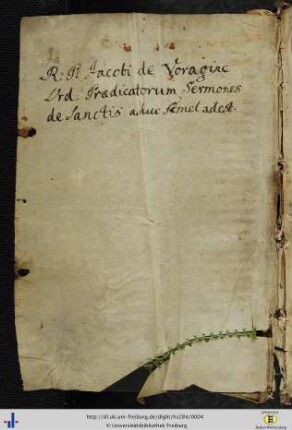 R: P: Jacobi de Voragine
Ord: Prædicatorum Sermones
de Sanctis adhuc semel adest.
http://dl.ub.uni-freiburg.de/diglit/hs284/0004
© Universitätsbibliothek Freiburg
Baden-Württemberg